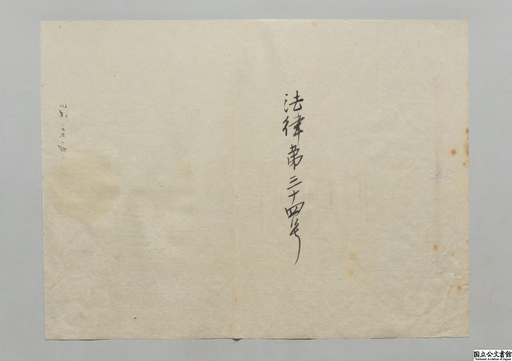 法律第三十四号
国立公文書館
National Archives of Japan